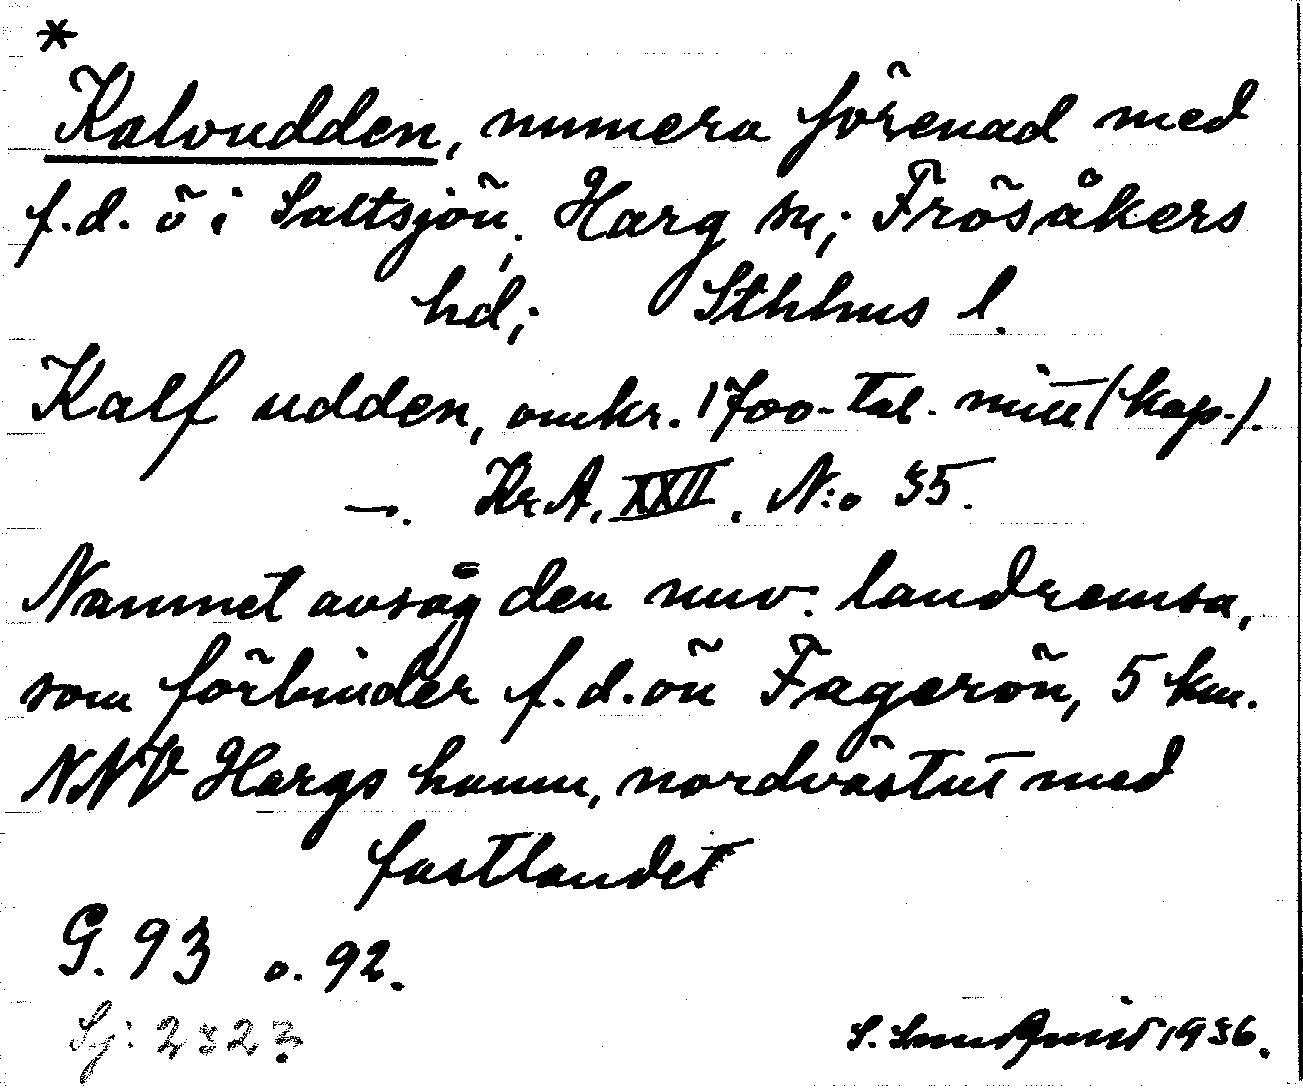 *
Kalvudden, numera förenad med
f.d. ö i Saltsjön, Harg sn; Frösåkers
hd; Sthlms l.
Kalf udden, omkr. 1700-tal. mitt (kop.).
—. Kr.A. XXII. N:o 35.
Namnet avsåg den nuv. landremsa,
som förbinder f.d. ön Fagerön, 5 km.
NNV Hargs hamn, nordvästut med
fastlandet
G. 93 o. 92.
Sj: 2323
S. 1936.